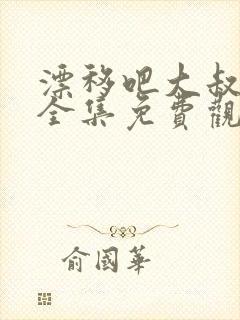 漂移吧大叔
全集免費觀
俞國華